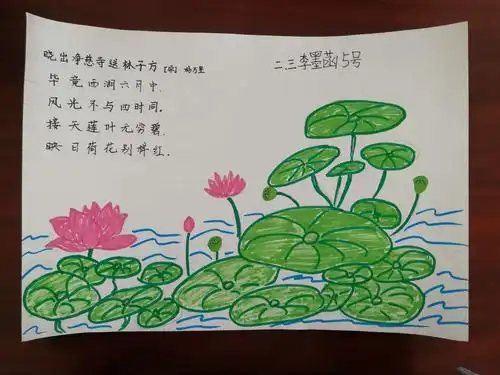 晓出净慈寺送林子方 [宋] 杨万里
二三李墨菡5号
毕竟西湖六月中.
风光不与四时间.
接天莲叶无穷碧.
映日荷花别样红.